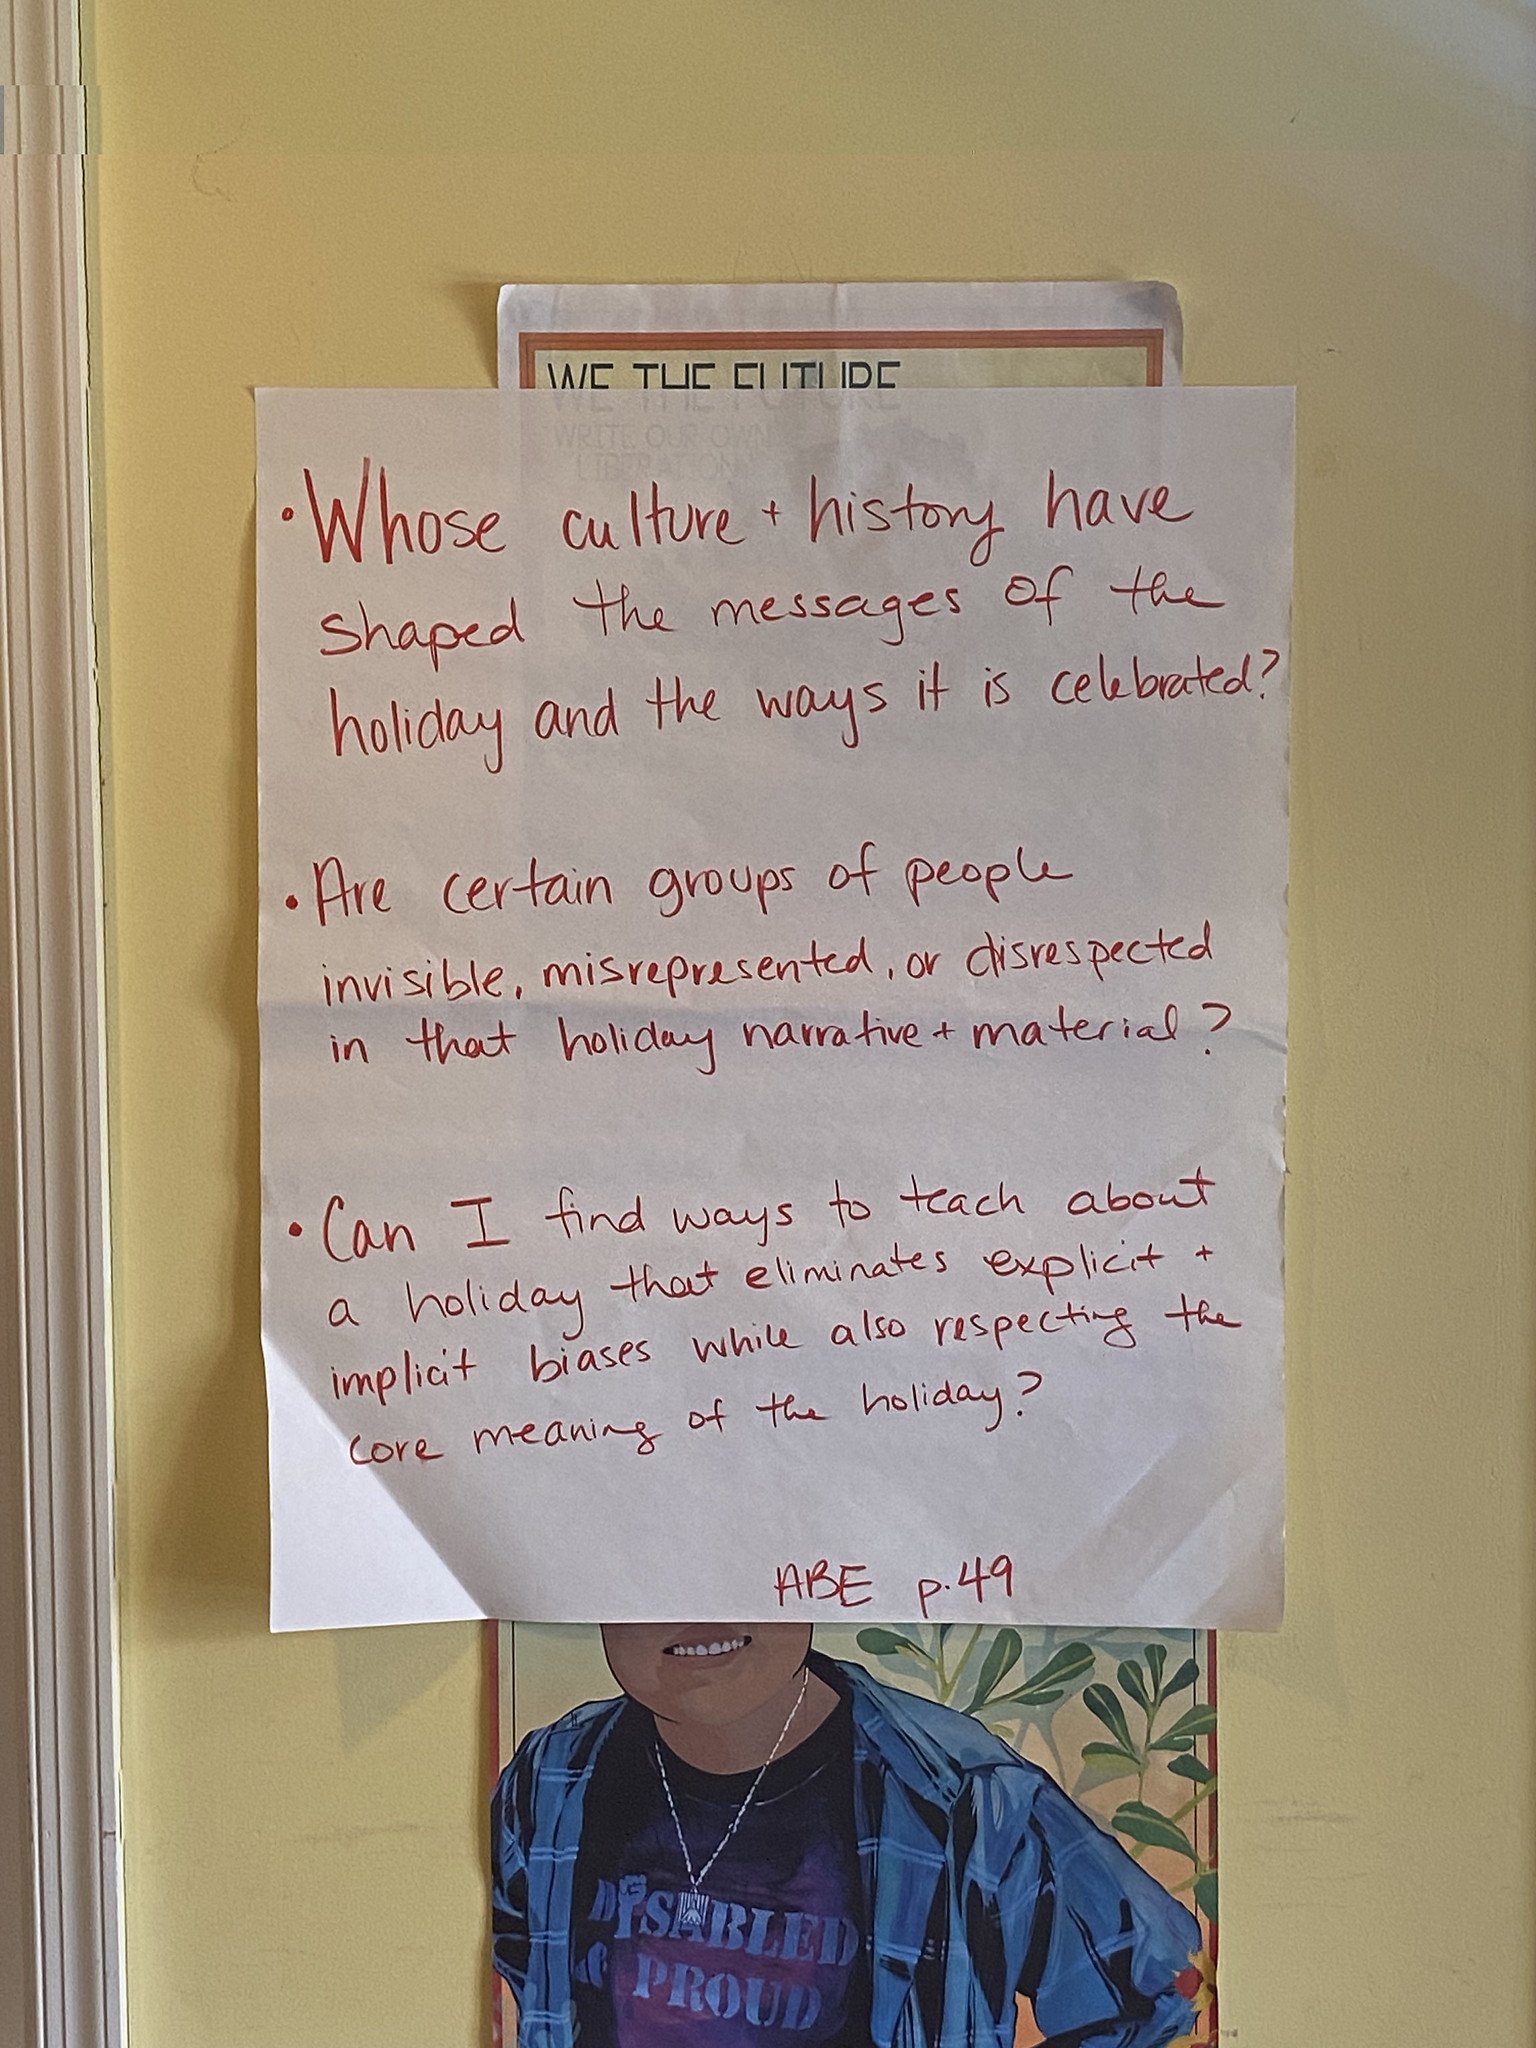 WE THE FUTURE
WRITE OUR OWN
LIBERATION
• Whose culture + history have
shaped the messages of the
holiday and the ways it is celebrated?
• Are certain groups of people
invisible, misrepresented, or disrespected
in that holiday narrative + material?
• Can I find ways to teach about
a holiday that eliminates explicit +
implicit biases while also respecting the
core meaning of the holiday?
ABE p.49
DISABLED
PROUD